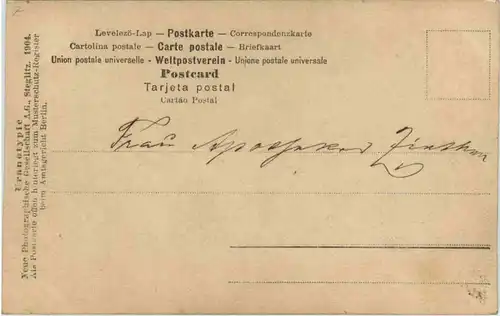 Levelező-Lap — Postkarte — Correspondenzkarte
Cartolina postale — Carte postale — Briefkaart
Union postale universelle - Weltpostverein - Unione postale universale
Postcard
Tarjeta postal
Cartão Postal
Frau Apotheker
Uranotypie
Neue Photographische Gesellschaft A.G., Steglitz. 1904.
Als Postcarte offen hinterlegt zum Musterschutz-Register
beim Amtsgericht Berlin.